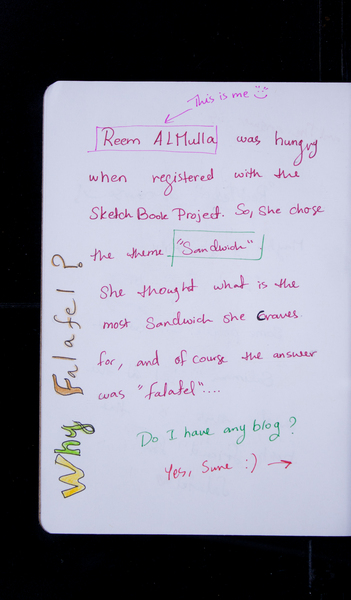 This is me
Reem ALMulla was hungry
when registered with the
Sketch Book Project. So, She chose
the theme "Sandwich"
She thought what is the
most Sandwich she craves
for, and of course the answer
was "falafel"....
Why Falafel?
Do I have any blog?
Yes, Sure :) →